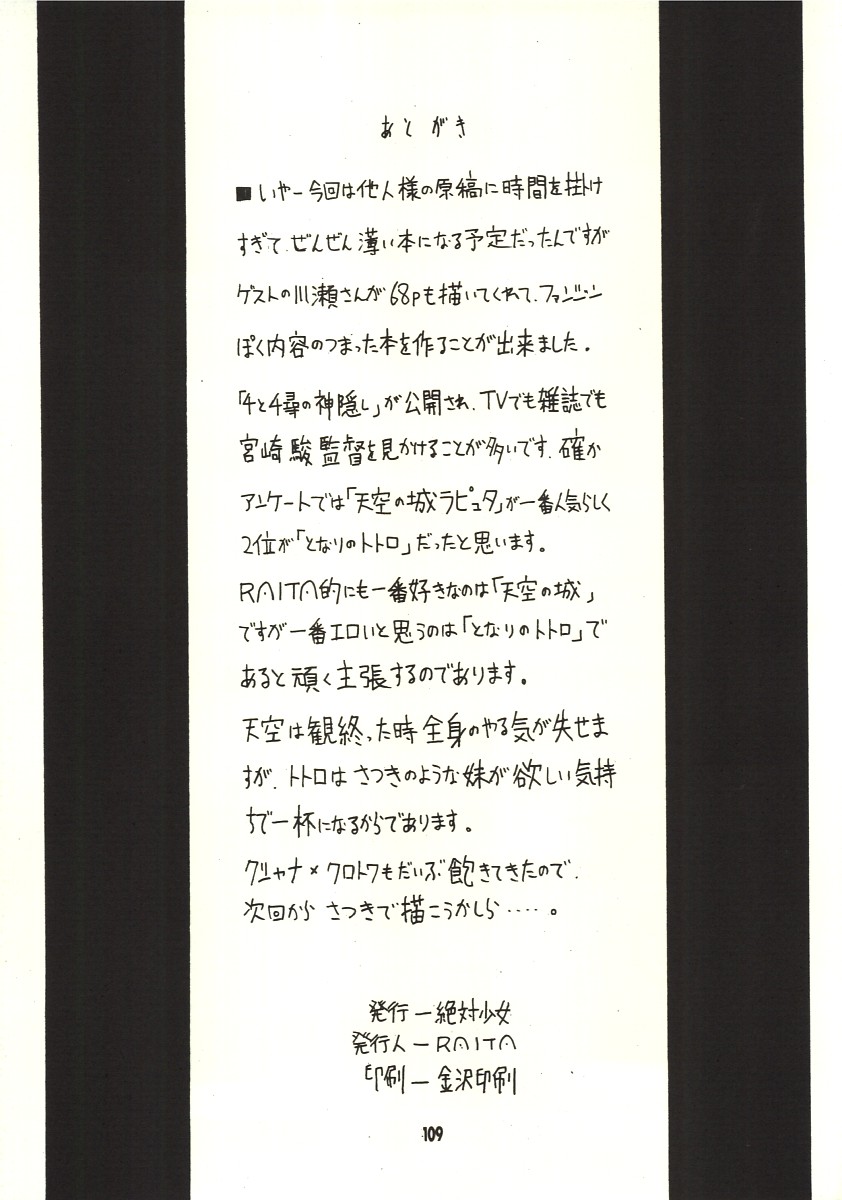 あとがき
■いやー今回は他人様の原稿に時間を掛け
すぎて、ぜんぜん薄い本になる予定だったんですが
ゲストの川瀬さんが68pも描いてくれて、ファンジン
ぽく内容のつまった本を作ることが出来ました。
「千と千尋の神隠し」が公開され、TVでも雑誌でも
宮崎駿監督を見かけることが多いです、確か
アンケートでは「天空の城ラピュタ」が一番人気らしく
2位が「となりのトトロ」だったと思います。
RAITA的にも一番好きなのは「天空の城」
ですが一番エロいと思うのは「となりのトトロ」で
あると頑く主張するのであります。
天空は観終った時全身のやる気が失せま
すが、トトロはさつきのような妹が欲しい気持
ちで一杯になるからであります。
クシャナ×クロトワもだいぶ飽きてきたので、
次回からさつきで描こうかしら‥‥。
発行ー絶対少女
発行人ーRAITA
印刷ー金沢印刷
109